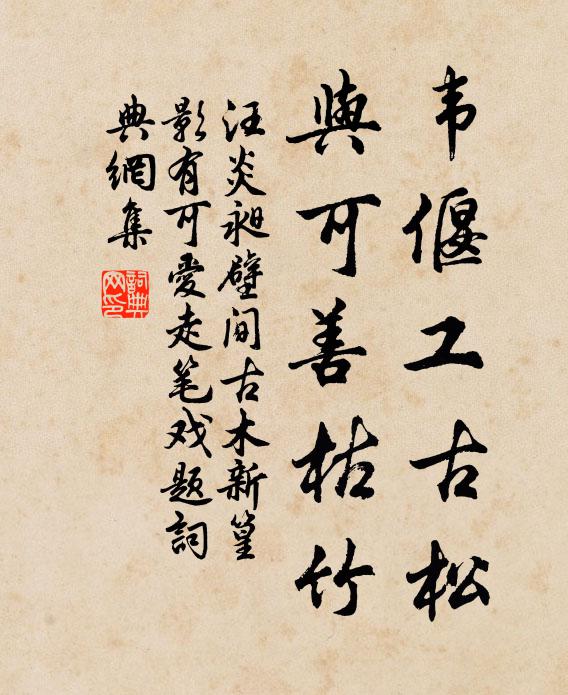 韦偃工古松
與可善枯竹
汪炎昶壁间古木新篁
影有可愛走笔戏题詞
典網集
詞典网印